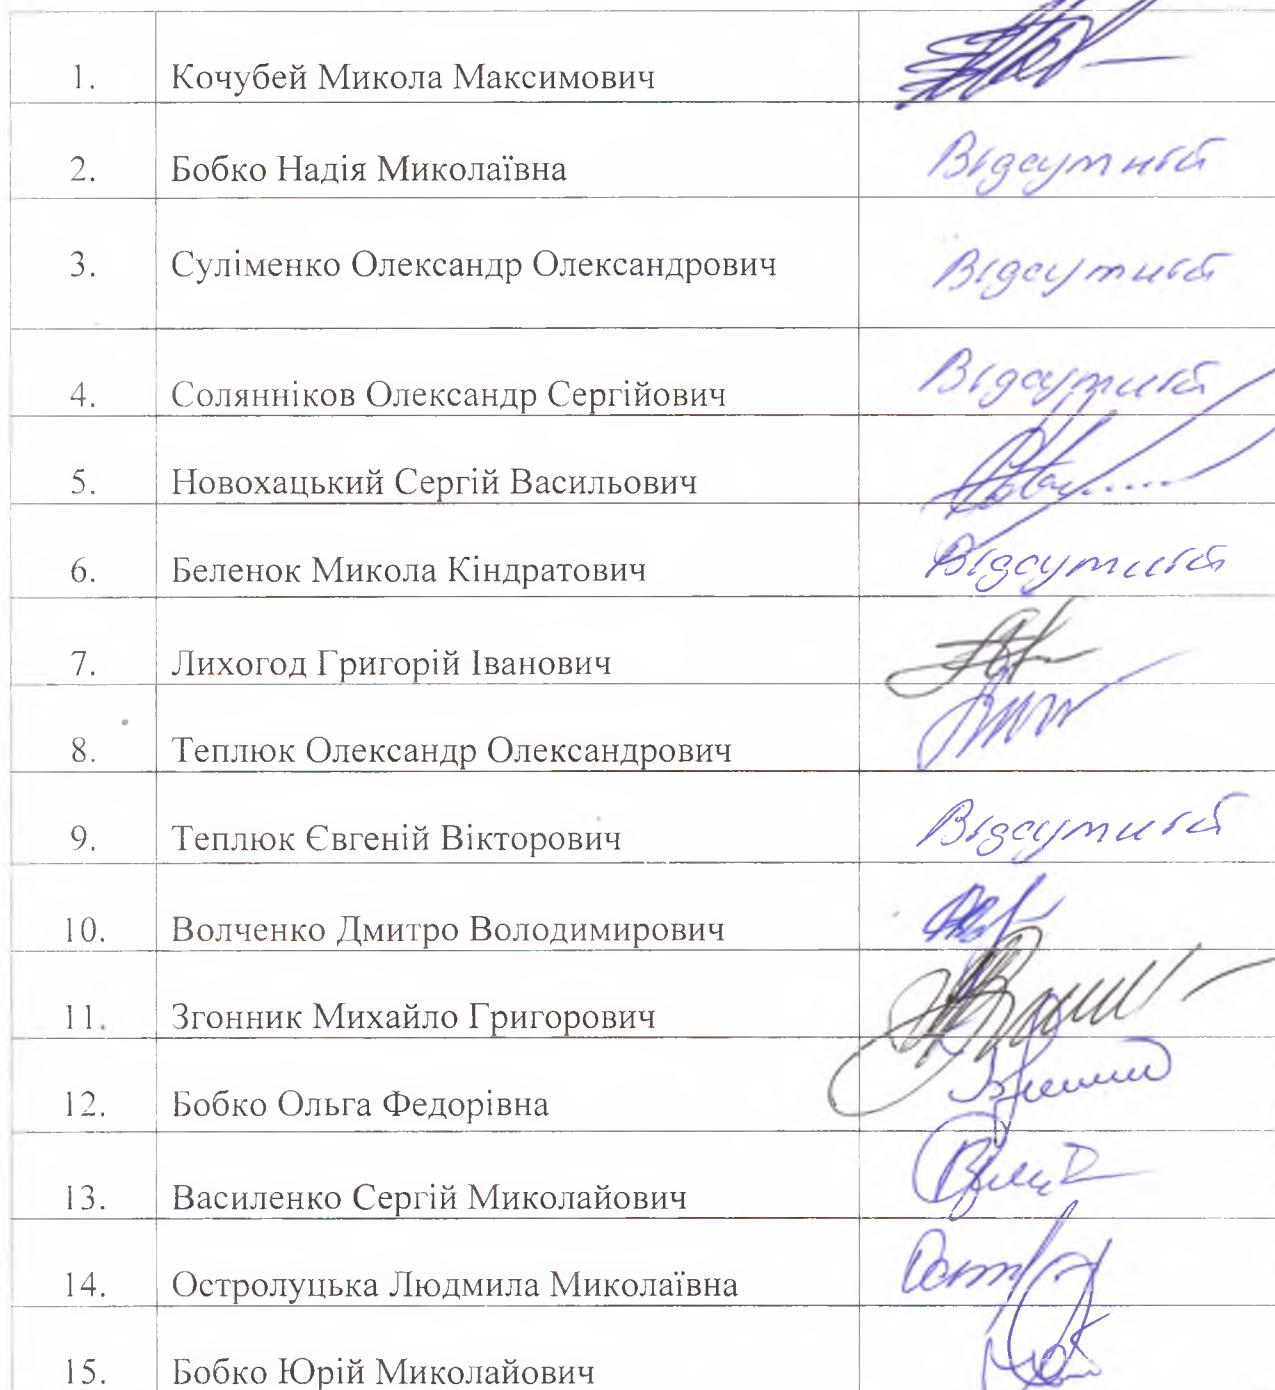 1. Кочубей Микола Максимович
2. Бобко Надія Миколаївна Відсутній
3. Суліменко Олександр Олександрович Відсутній
4. Солянніков Олександр Сергійович Відсутній
5. Новохацький Сергій Васильович
6. Беленок Микола Кіндратович Відсутній
7. Лихогод Григорій Іванович
8. Теплюк Олександр Олександрович
9. Теплюк Євгеній Вікторович Відсутній
10. Волченко Дмитро Володимирович
11. Згонник Михайло Григорович
12. Бобко Ольга Федорівна
13. Василенко Сергій Миколайович
14. Остролуцька Людмила Миколаївна
15. Бобко Юрій Миколайович